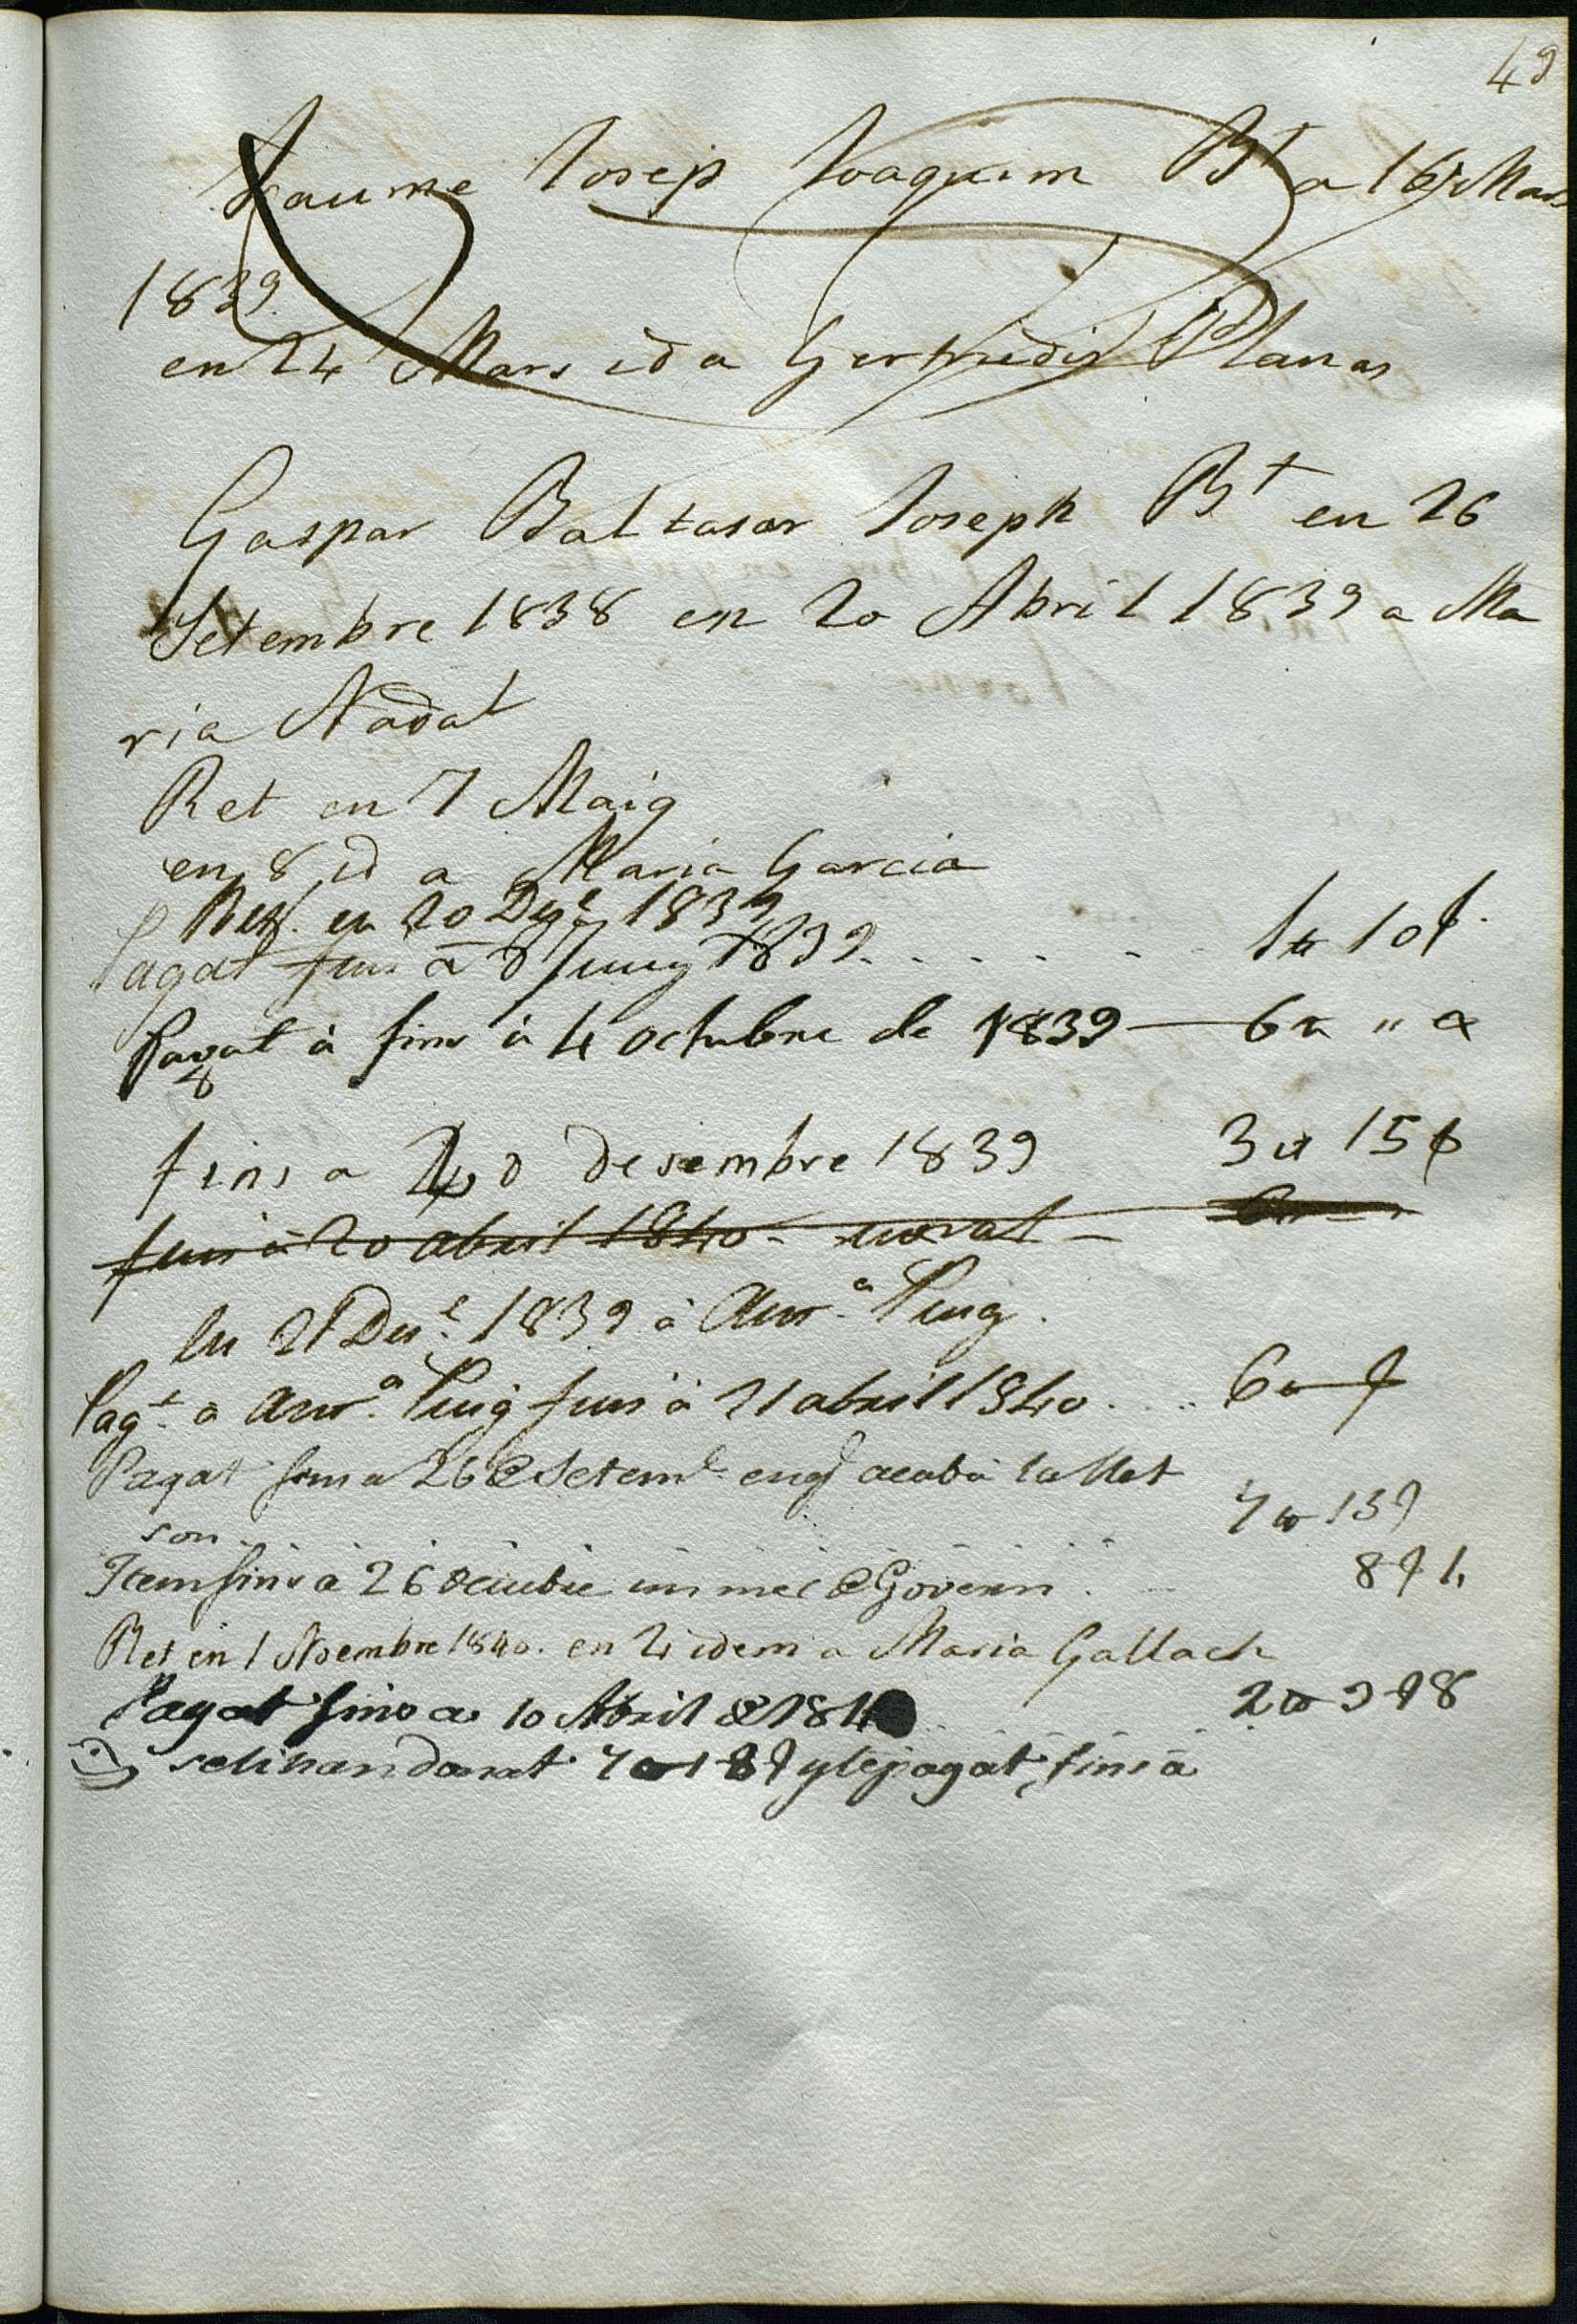 49
Jaume Josep Joaquim Bt a 16 Mars
1839
en 24 Mars id a Gertrudis Planas
Gaspar Baltasar Joseph Bt en 26
Setembre 1838 en 20 Abril 1839 a Ma
ria Nadal
Ret en 7 Maig
en 8 id a Maria Garcia
Ret. en 20 Dese 1839
Pagat fins a 8 Juny 1839 . . . . . 1 ₶ 10 s
Pagat à fins à 4 octubre de 1839 — 6 ₶ " s
8
fins a 20 desembre 1839 3 ₶ 15 s
fins à 20 abril 1840 - 
En 21 Dese 1839 à Anra Puig.
Pagt a Anra Puig fins à 21 abril 1840 . . . . 6 ₶ s
Pagat fins a 26 de Setembe acabá la llet
son 7 ₶ 13 s
Item fins à 26 Octubre un mes de Govern . 8 s 4
Ret en 1 Noembre 1840. en 4 idem a Maria Gallach
Pagat fins a 10 Abril de 184 2 ₶ 9 s 8
se li han donat 7 ₶ 18 s y le pagat fins à